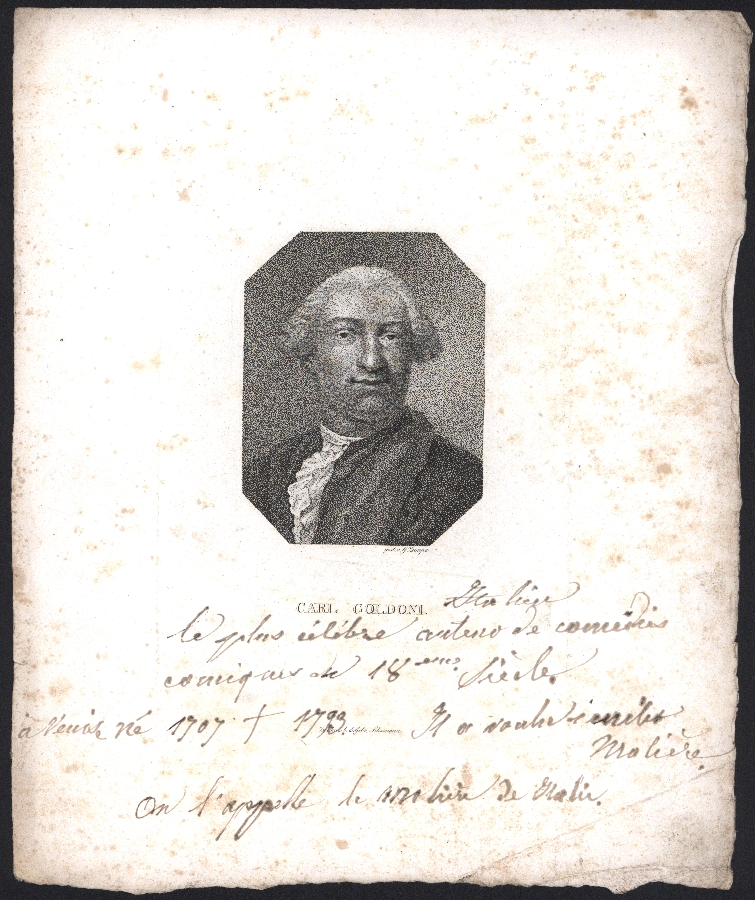 CARL GOLDONI.
Italien
le plus célébre auteur de comédies
comiques du 18 eme Siècle.
à Venise né 1707 † 1793 Il a voulu imiter
Molière.
On l'appelle le moliere de Italie.